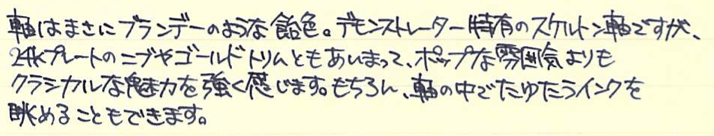 軸はまさにブランデーのような飴色。デモンストレーター特有のスケルトン軸ですが、
24kプレートのニブやゴールドトリムともあいまって、ポップな雰囲気よりも
クラシカルな魅力を強く感じます。もちろん、軸の中でたゆたうインクを
眺めることもできます。